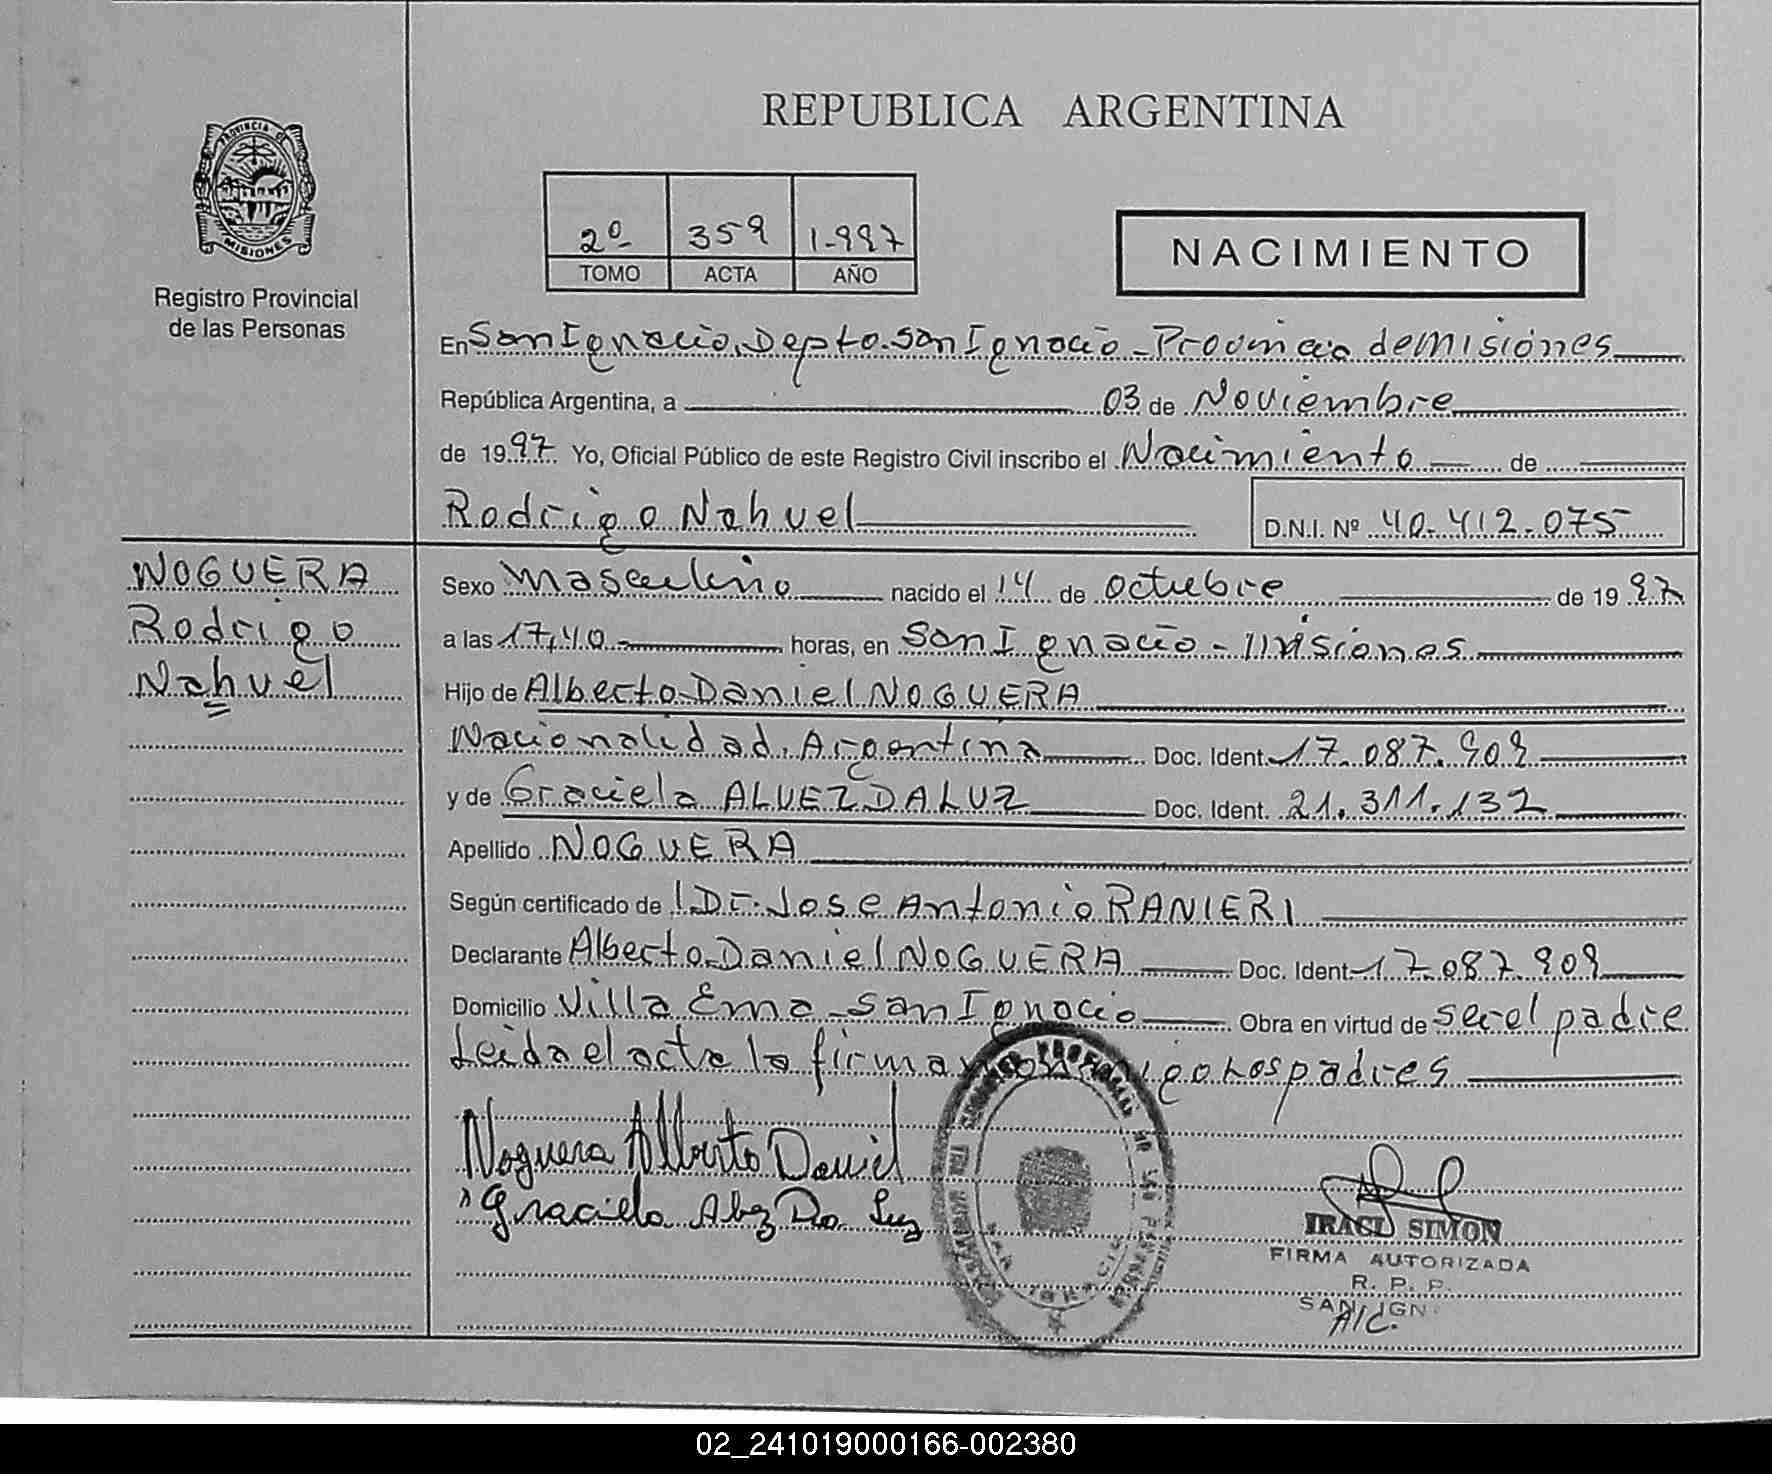 REPUBLICA ARGENTINA
PROVINCIA DE
MISIONES
Registro Provincial
de las Personas
2º 359 1.997
TOMO ACTA AÑO
NACIMIENTO
En San Ignacio, Depto. San Ignacio - Provincia de Misiones
República Argentina, a 03 de Noviembre
de 1997 Yo, Oficial Público de este Registro Civil inscribo el Nacimiento de
Rodrigo Nahuel D.N.I. Nº 40.412.075
NOGUERA
Rodrigo
Nahuel
Sexo Masculino nacido el 14 de Octubre de 1997
a las 17,40 horas, en San Ignacio - Misiones
Hijo de Alberto Daniel NOGUERA
Nacionalidad, Argentina Doc. Ident. 17.087.909
y de Graciela ALVEZ DA LUZ Doc. Ident. 21.311.132
Apellido NOGUERA
Según certificado de Dr. Jose Antonio RANIERI
Declarante Alberto Daniel NOGUERA Doc. Ident. 17.087.909
Domicilio Villa Ema - San Ignacio Obra en virtud de ser el padre
Leida el acta la firman conmigo Los padres
Noguera Alberto Daniel
Graciela Alvez Da Luz
IRACI SIMON
FIRMA AUTORIZADA
R. P. P.
SAN IGN.
A/C.
02_241019000166-002380